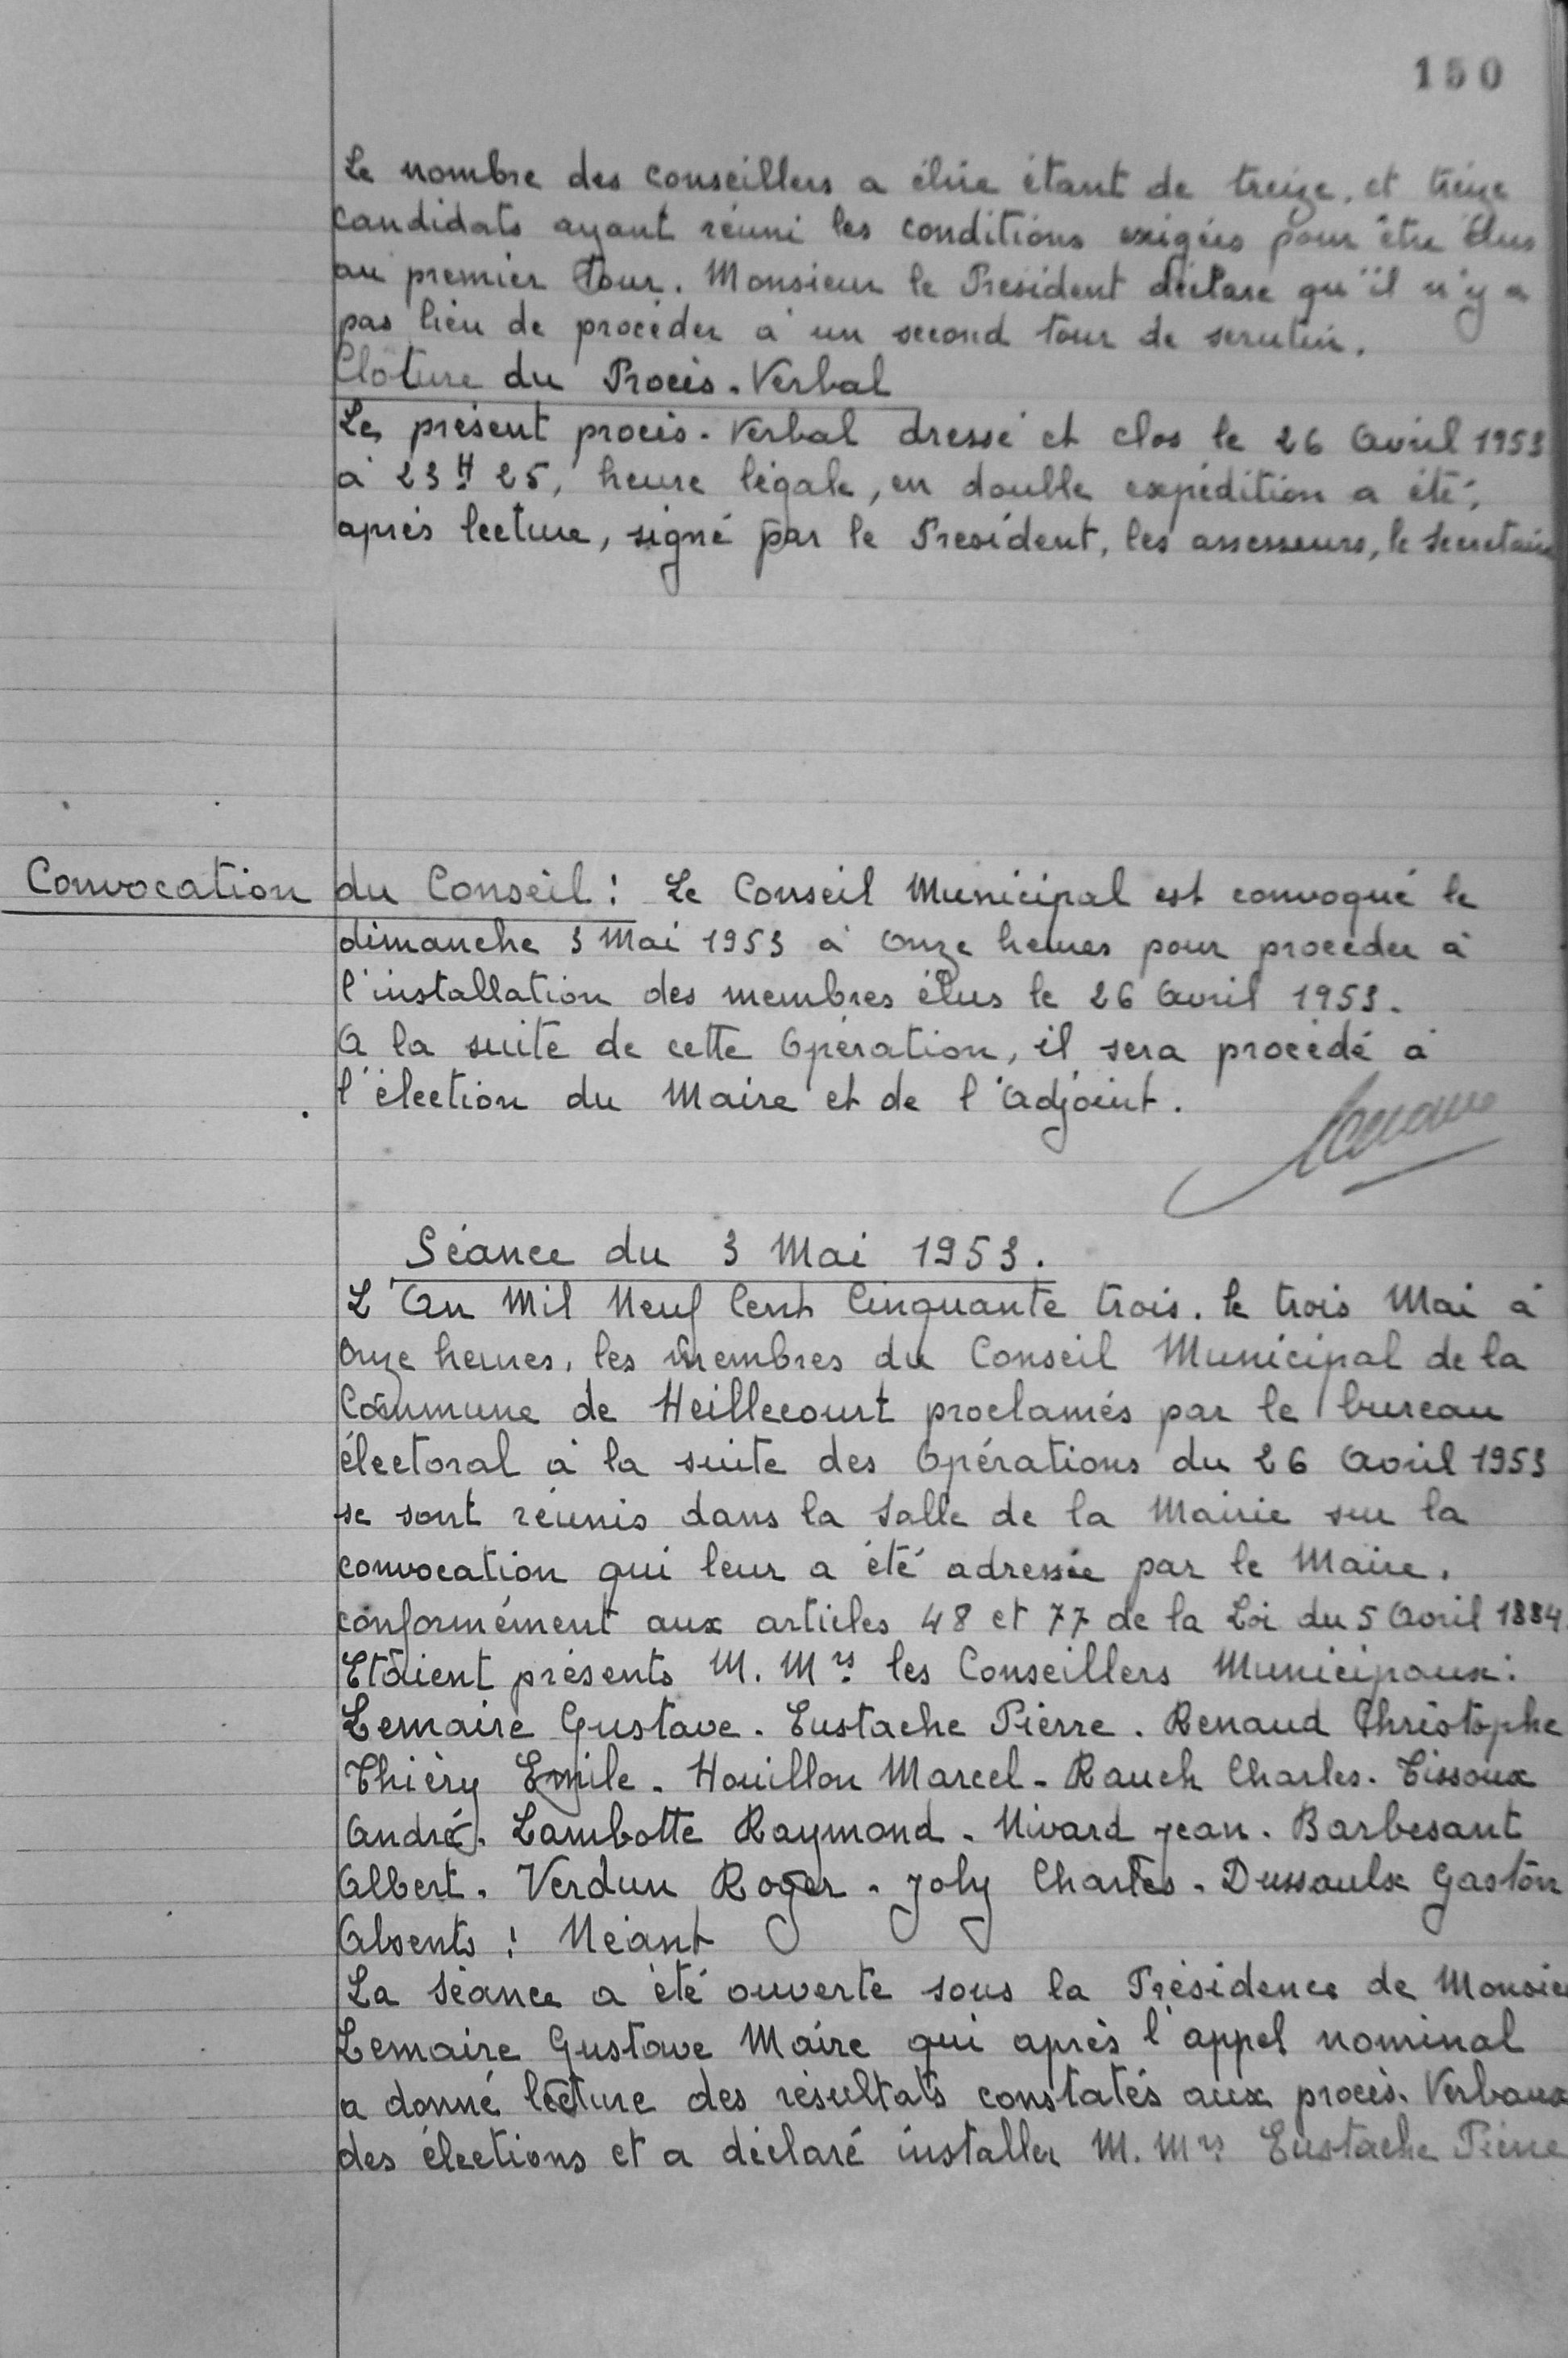 150
Le nombre des conseillers a élire étant de treize, et treize
candidats ayant réuni les conditions exigées pour être élus
au premier tour. Monsieur le Président déclare qu'il n'y a
pas lieu de procéder à un second tour de scrutin.
Clôture du Procès-Verbal
Le présent procès-Verbal dressé et clos le 26 Avril 1953
à 23H 25, heure légale, en double expédition a été,
après lecture, signé par le Président, les assesseurs, le Secrétaire
Convocation du Conseil : Le Conseil Municipal est convoqué le
dimanche 3 Mai 1953 à Onze heures pour procéder à
l'installation des membres élus le 26 Avril 1953.
A la suite de cette Opération, il sera procédé à
l'élection du Maire et de l'Adjoint.
Séance du 3 Mai 1953.
L'An Mil Neuf Cent Cinquante trois. le trois Mai à
Onze heures, les membres du Conseil Municipal de la
Commune de Heillecourt proclamés par le bureau
électoral à la suite des Opérations du 26 Avril 1953
se sont réunis dans la Salle de la Mairie sur la
convocation qui leur a été adressée par le Maire,
conformément aux articles 48 et 77 de la Loi du 5 Avril 1884.
Etaient présents M. Mrs les Conseillers Municipaux :
Lemaire Gustave. Eustache Pierre. Renaud Christophe
Thiéry Emile. Houillon Marcel. Rauch Charles. Tissoux
André. Lambotte Raymond. Nivard Jean. Barbesant
Albert. Verdun Roger. Joly Charles. Dussaulx Gaston
Absents : Néant
La Séance a été ouverte sous la Présidence de Monsieu
Lemaire Gustave Maire qui après l'appel nominal
a donné lecture des résultats constatés aux procès-Verbaux
des élections et a déclaré installer M. Mrs Eustache Pierre